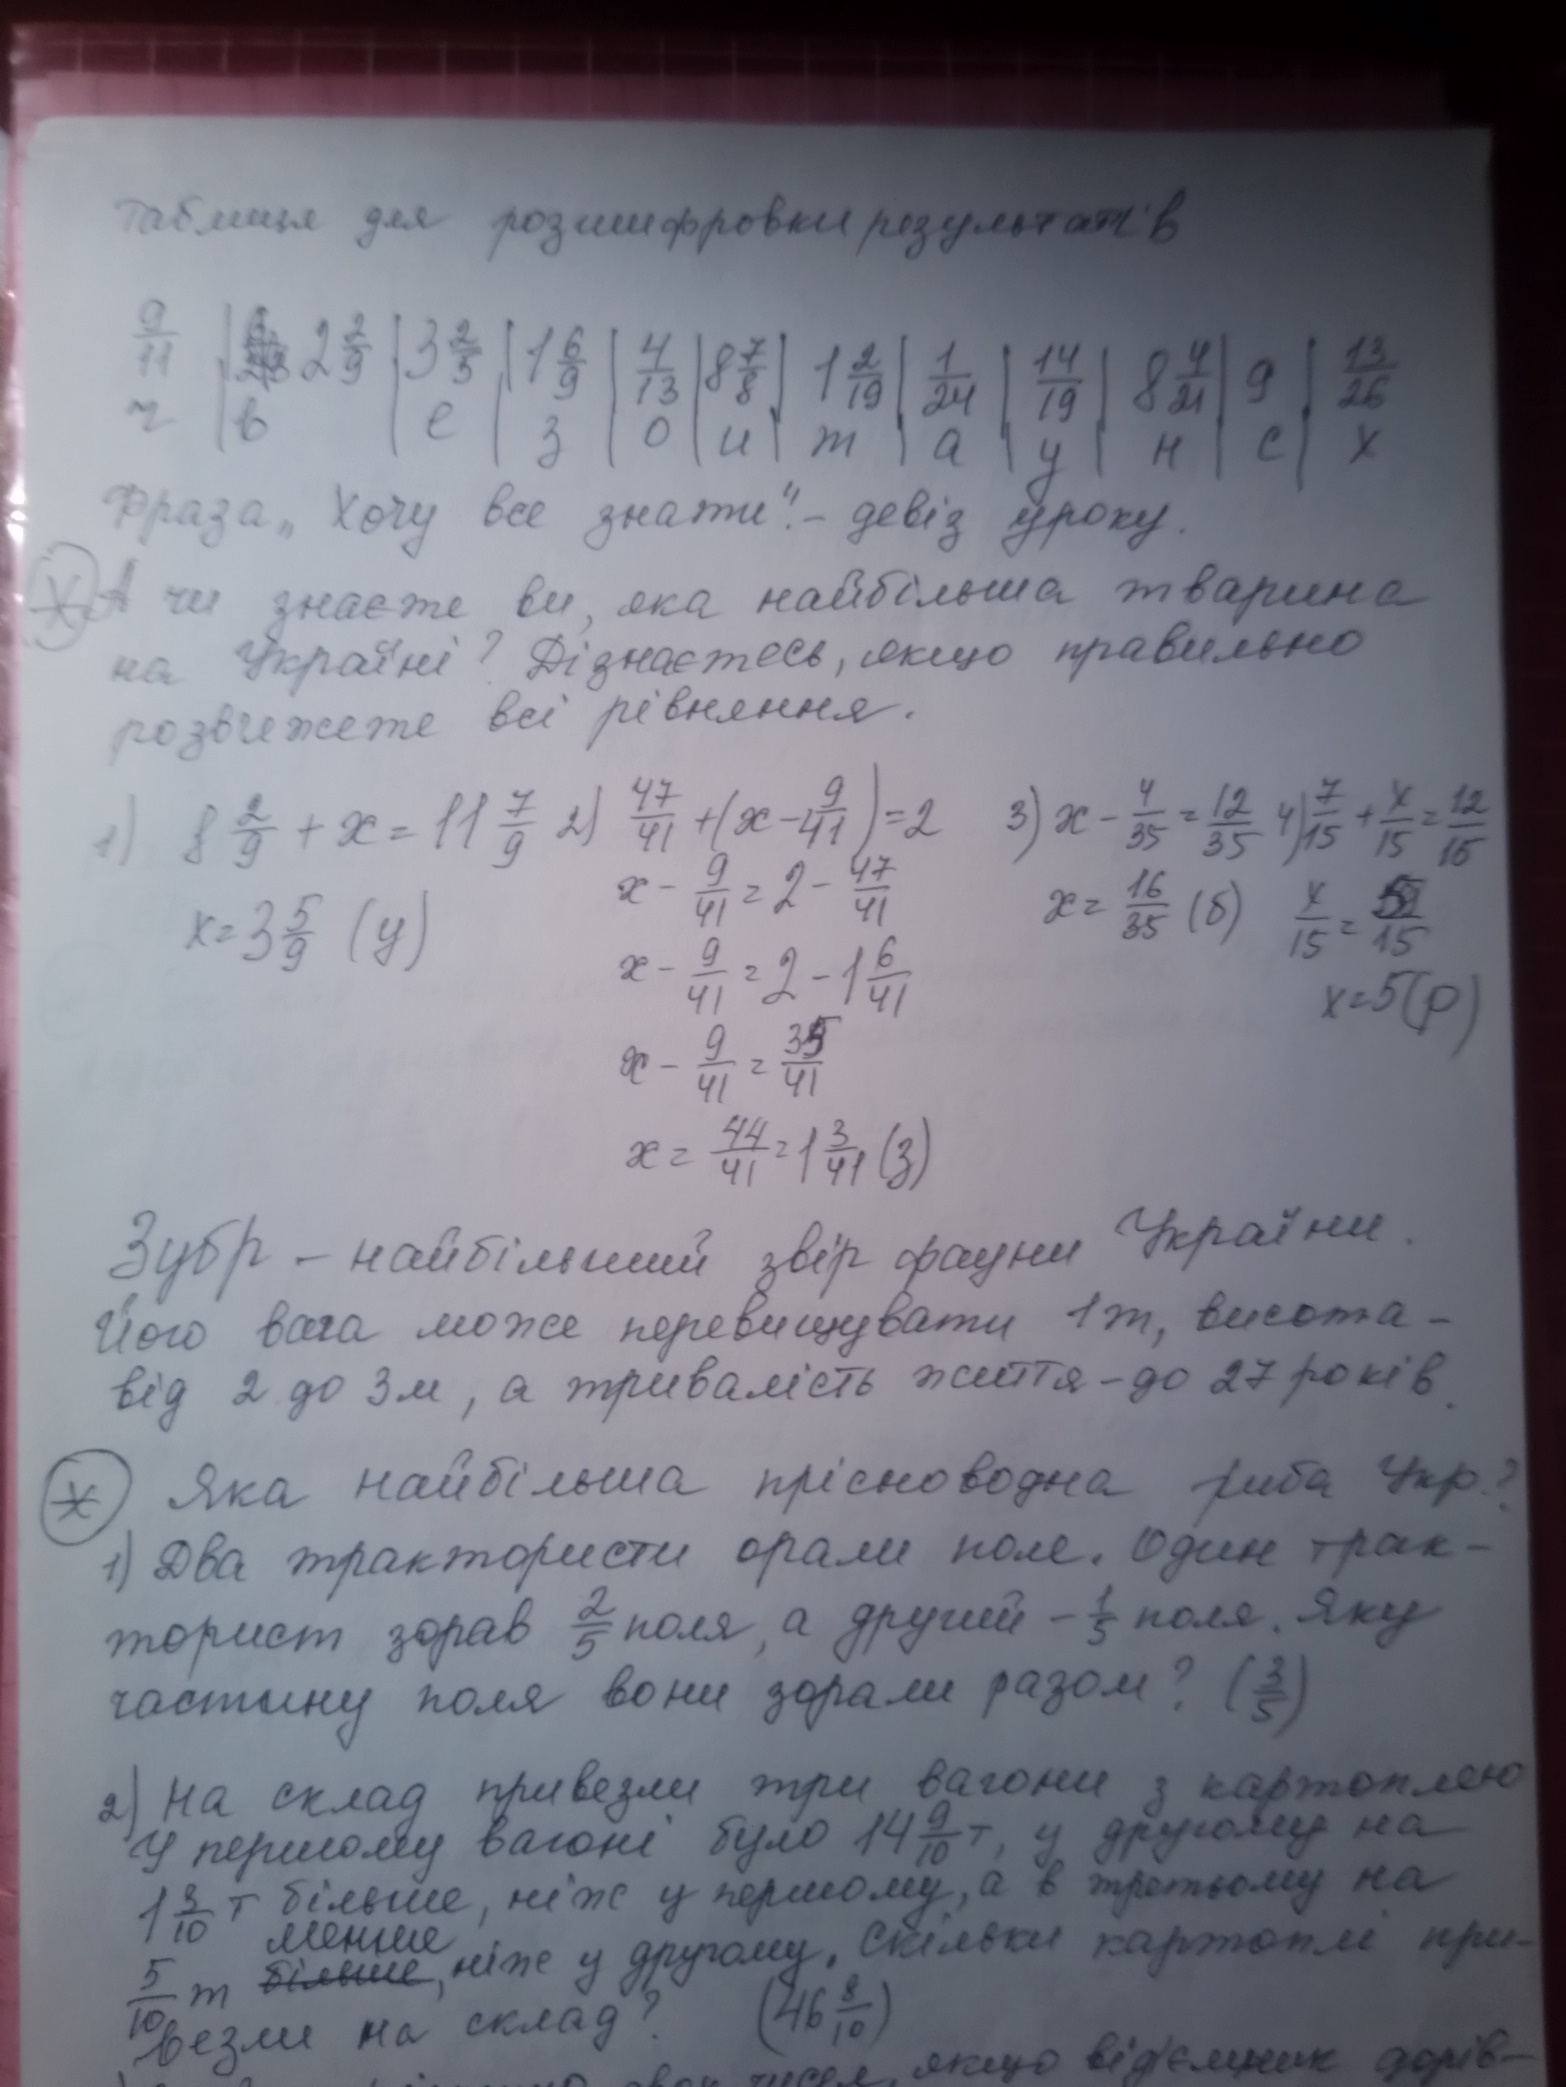 Таблиця для розшифровки результатів
9/11 | 2 2/9 | 3 2/5 | 1 6/9 | 4/13 | 8 7/8 | 1 2/19 | 1/24 | 14/19 | 8 4/21 | 9 | 13/26
ч | в | е | з | о | и | т | а | у | н | с | х
Фраза „Хочу все знати“ – девіз уроку.
* А чи знаєте ви, яка найбільша тварина
на Україні? Дізнаєтесь, якщо правильно
розв'яжете всі рівняння.
1) 8 2/9 + x = 11 7/9 2) 47/41 + (x - 9/41) = 2 3) x - 4/35 = 12/35 4) 7/15 + x/15 = 12/15
x = 3 5/9 (у) x - 9/41 = 2 - 47/41 x = 16/35 (б) x/15 = 5/15
x - 9/41 = 2 - 1 6/41 x = 5 (р)
x - 9/41 = 35/41
x = 44/41 = 1 3/41 (з)
Зубр – найбільший звір фауни України.
Його вага може перевищувати 1т, висота –
від 2 до 3м, а тривалість життя – до 27 років.
* Яка найбільша прісноводна риба Укр.?
1) Два трактористи орали поле. Один трак-
торист зорав 2/5 поля, а другий – 1/5 поля. Яку
частину поля вони зорали разом? (3/5)
2) На склад привезли три вагони з картоплею
У першому вагоні було 14 9/10 т, у другому на
1 3/10 т більше, ніж у першому, а в третьому на
5/10 т менше, ніж у другому. Скільки картоплі при-
везли на склад? (46 8/10)
двох чисел, якщо від'ємник дорів-